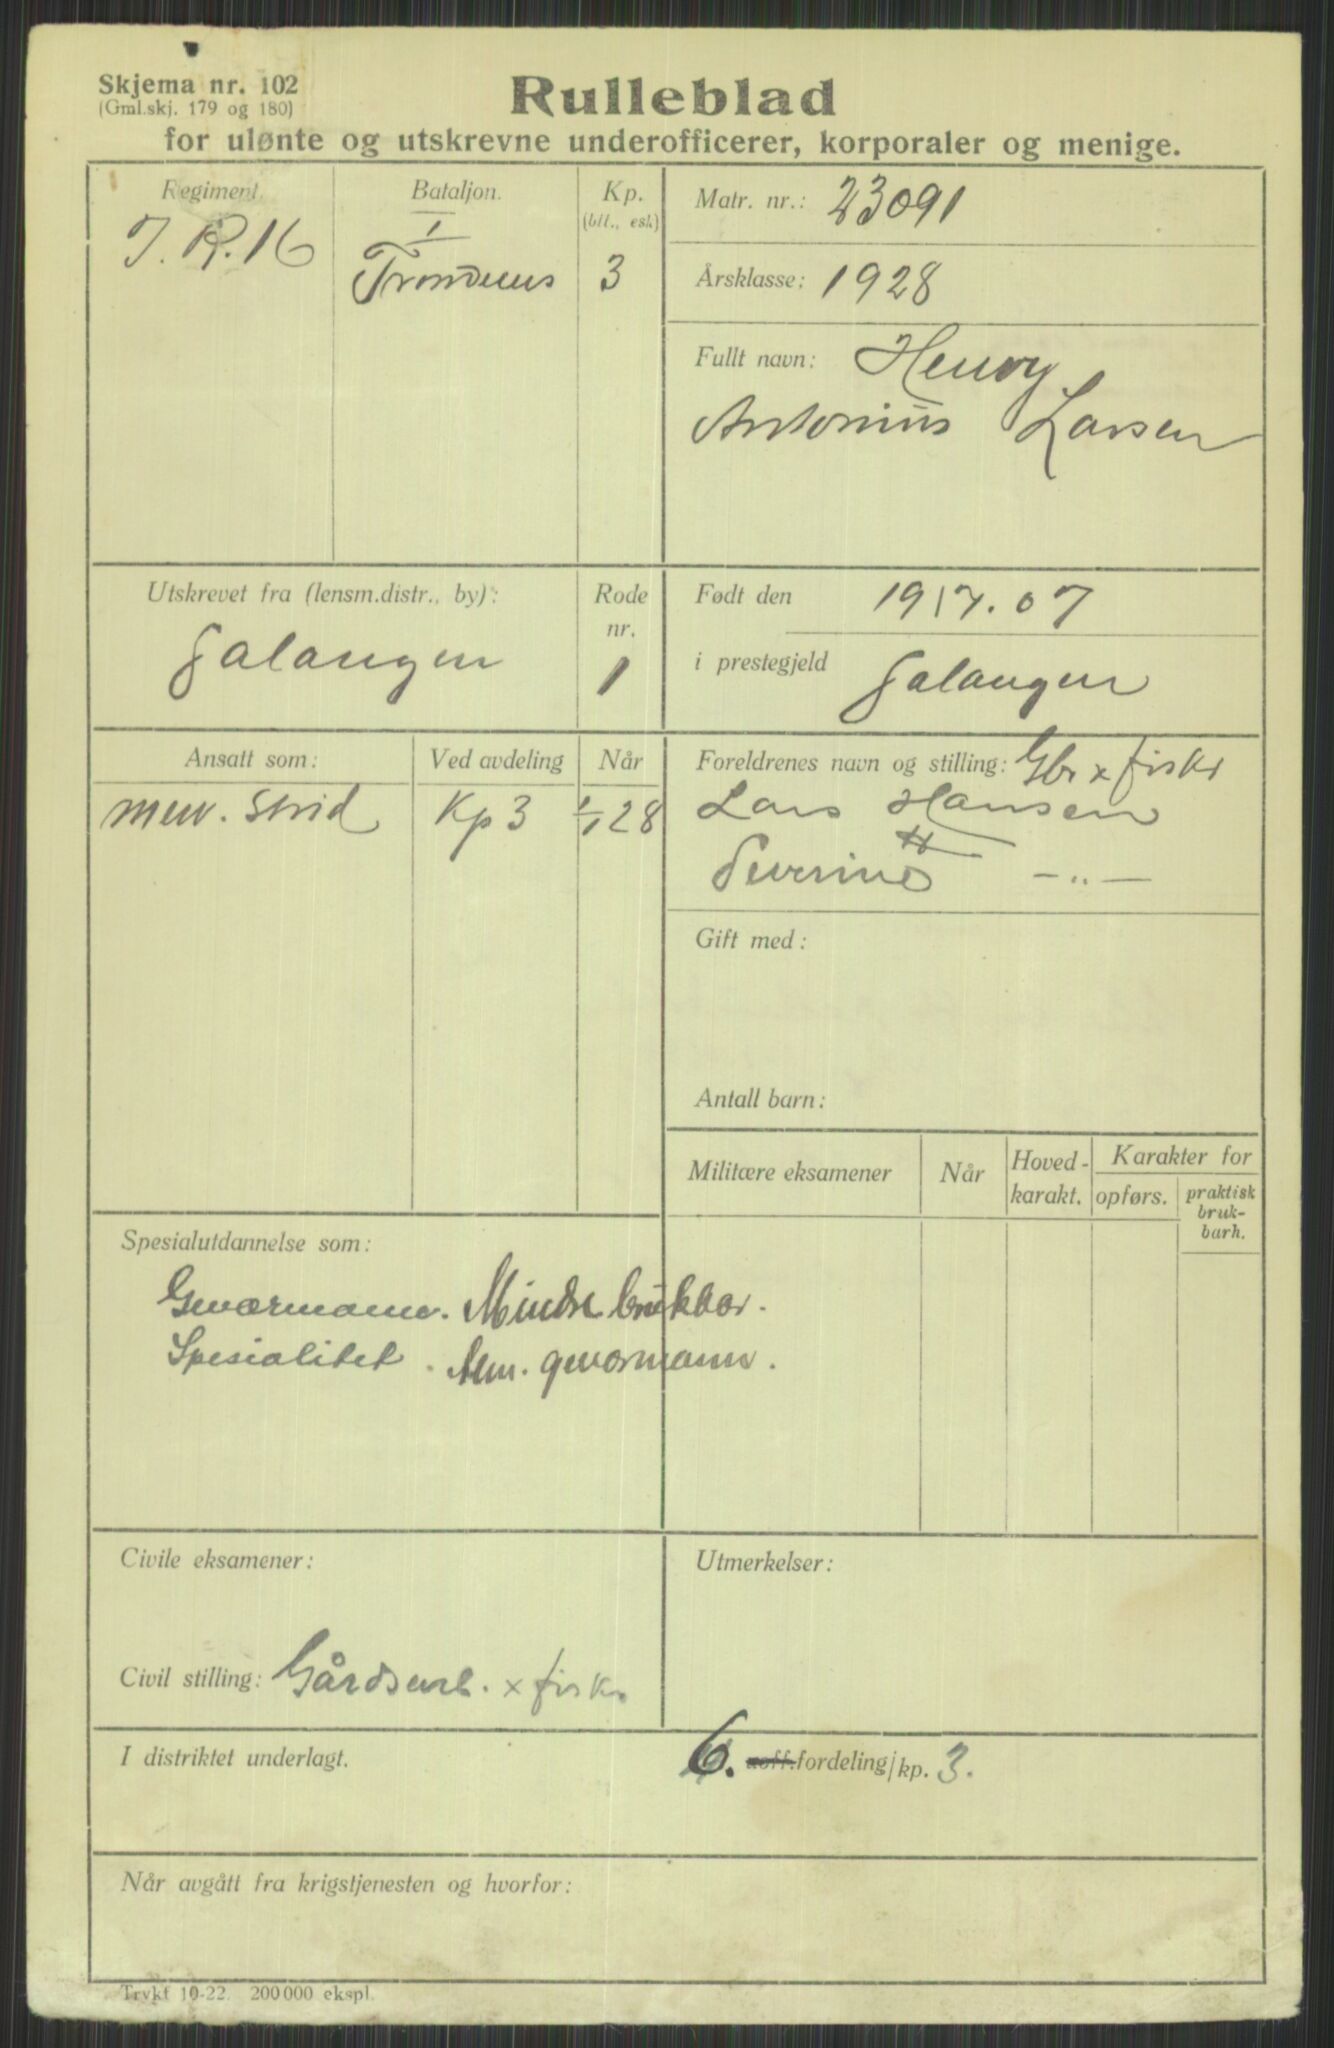 Skjema nr. 102
(Gml.skj. 179 og 180)
Rulleblad
for ulønte og utskrevne underofficerer, korporaler og menige.
Regiment.
J. R. 16
Bataljon.
I
Trondenes
Kp.
(btt., esk)
3
Matr. nr.: 23091
Årsklasse: 1928
Fullt navn: Henry
Antonius Larsen
Utskrevet fra (lensm.distr., by):
Salangen
Rode
nr.
1
Født den 19 17/7. 07
i prestegjeld Salangen
Ansatt som:
men. Strid
Ved avdeling
Kp 3
Når
1/1 28
Foreldrenes navn og stilling: Gbr x fisker
Lars Hansen
Severine H —„—
Gift med:
Antall barn:
Militære eksamener
Når
Hoved-
karakt.
Karakter for
opførs.
praktisk
bruk-
barh.
Spesialutdannelse som:
Geværmann. Mindre brukbar.
Spesialitet. Alm. geværmann.
Civile eksamener:
Civil stilling: Gårdsarb. x fisker
Utmerkelser:
I distriktet underlagt.
6. uoff.fordeling/kp. 3.
Når avgått fra krigstjenesten og hvorfor:
Trykt 10-22. 200 000 ekspl.